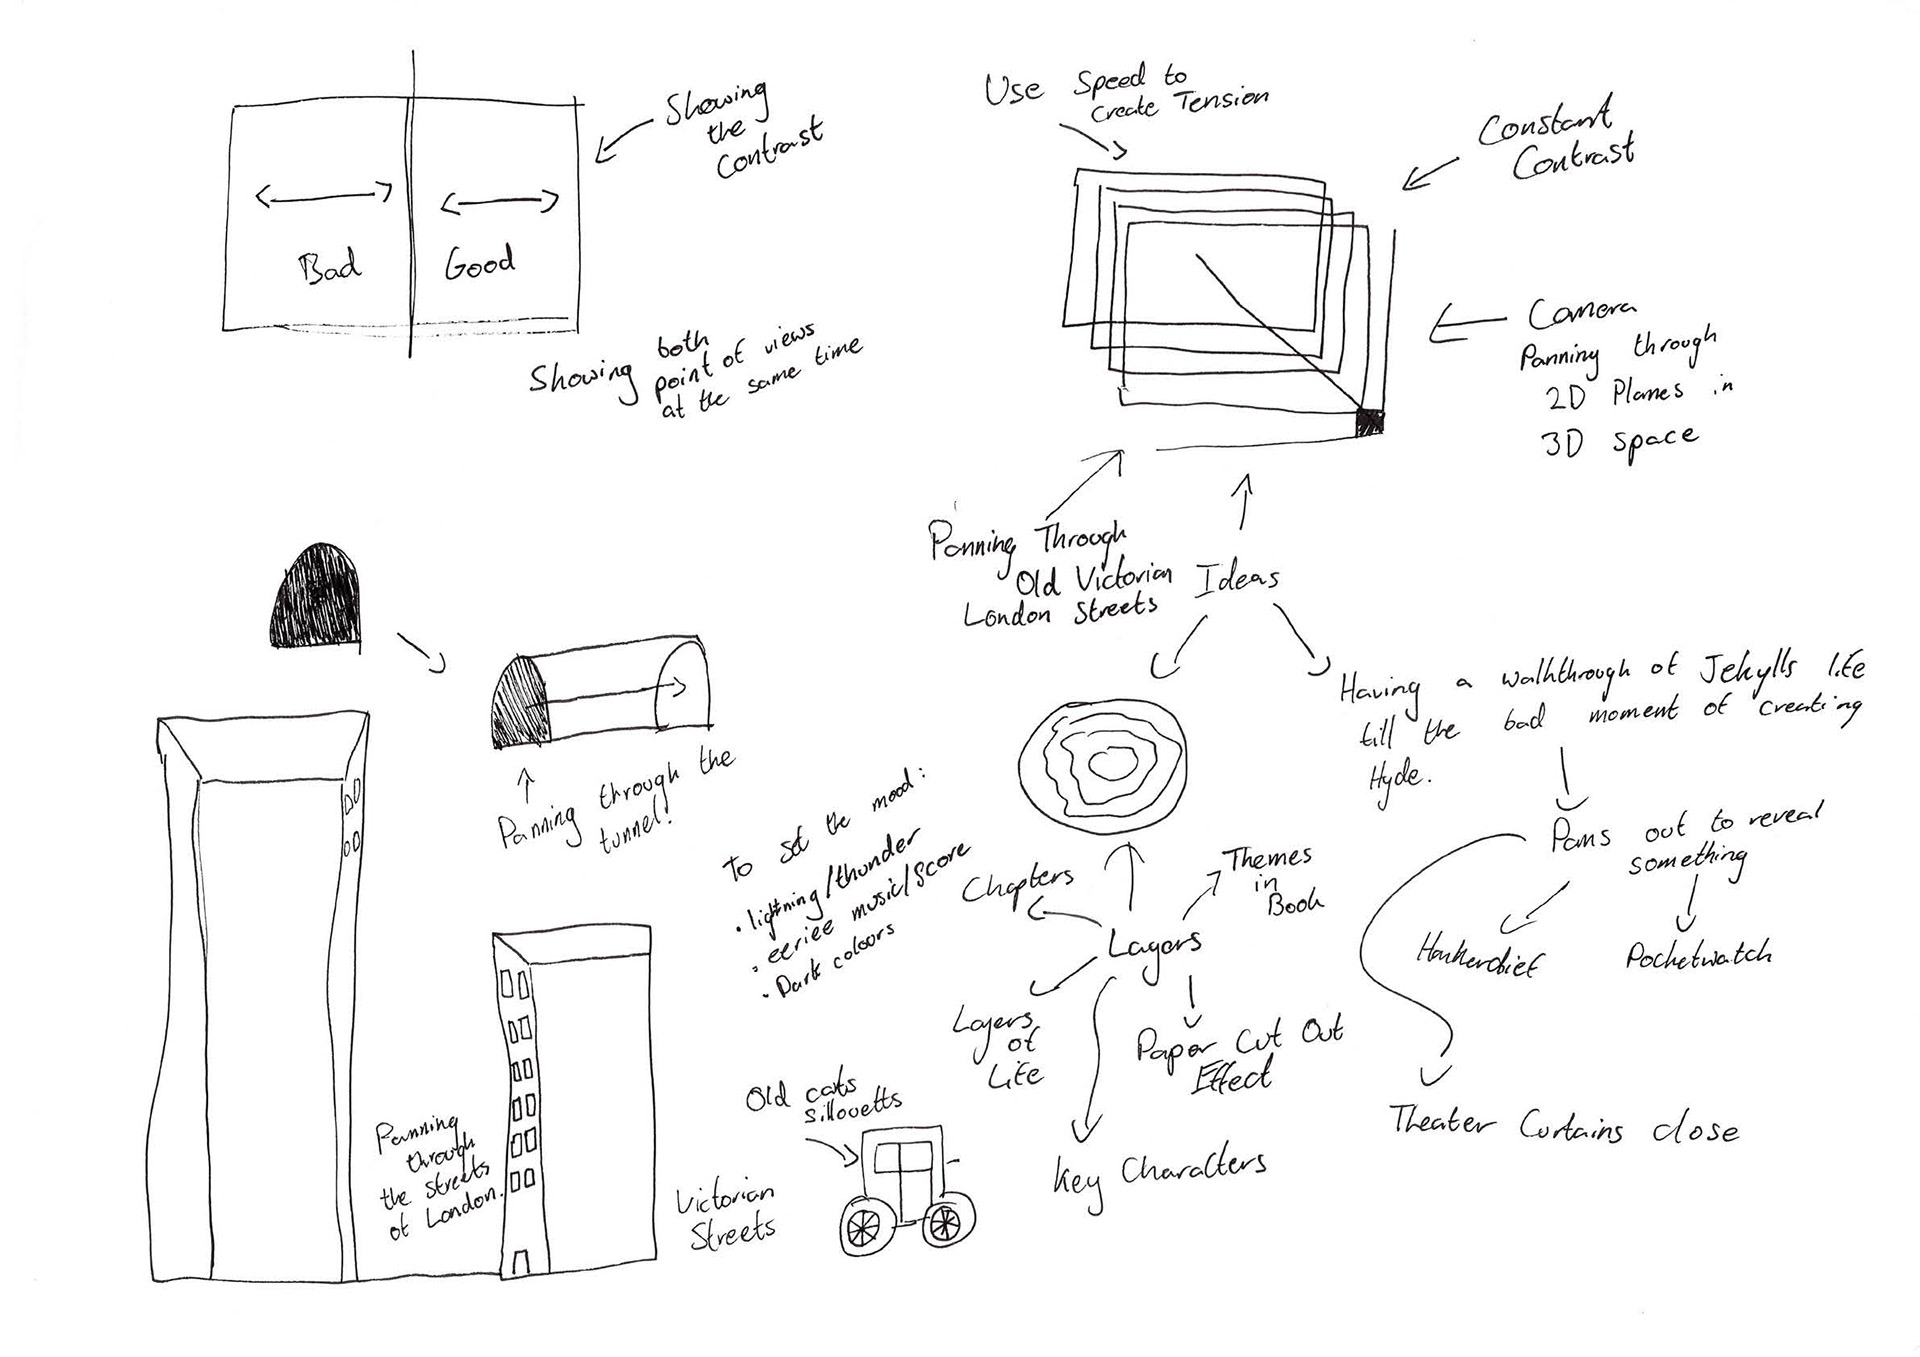 Showing
the
Contrast
Bad
Good
Showing both
point of views
at the same time
Use Speed to
Create Tension
Constant
Contrast
Camera
Panning through
2D Planes in
3D space
Panning Through
Old Victorian
London Streets
Ideas
Having a walkthrough of Jekylls life
till the bad moment of creating
Hyde.
Pans out to reveal
something
Hankerchief
Pocketwatch
Theater Curtains close
Panning through the
tunnel!
To set the mood:
• lightning/thunder
• eeriee music/score
• Dark colours
Chapters
Themes
in
Book
Layers
Layers
of
Life
Paper Cut Out
Effect
Key Characters
Panning
through
the streets
of London.
Old cabs
Sillouetts
Victorian
Streets